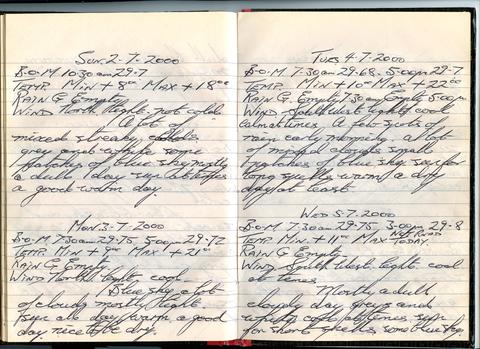 SUN 2-7-2000
B.O.M 10.30am 29.7
TEMP Min + 8°C Max + 18°C
RAIN G Empty
WIND North light not cold
A lot of
mixed streaky clouds
grey and white some
patches of blue sky mostly
a dull day sun at times
a good warm day.
MON 3-7-2000
B.O.M 7.30am 29.75 5.00pm 29.72
TEMP Min + 9°C Max + 21°C
RAIN G Empty
WIND North light cool
Blue sky a lot
of clouds mostly light
sun all day warm a good
day nice to be dry.
TUES 4-7-2000
B.O.M 7.30am 29.68 5.00pm 29.7
TEMP Min + 10°C Max + 22°C
RAIN G Empty 7.30am Empty 5.00pm
WIND South West lightly cool
calm at times A few spots of
rain early morning a lot
of mixed clouds small
patches of blue sky sun for
long spells warm a dry
day at least.
WED 5-7-2000
B.O.M 7.30am 29.75 3.00pm 29.8
TEMP Min + 11°C Max NOT READ TODAY.
RAIN G Empty
WIND South West light cool
at times
Mostly a dull
cloudy day greys and
whites cool at times sun
for short spells some blue sky